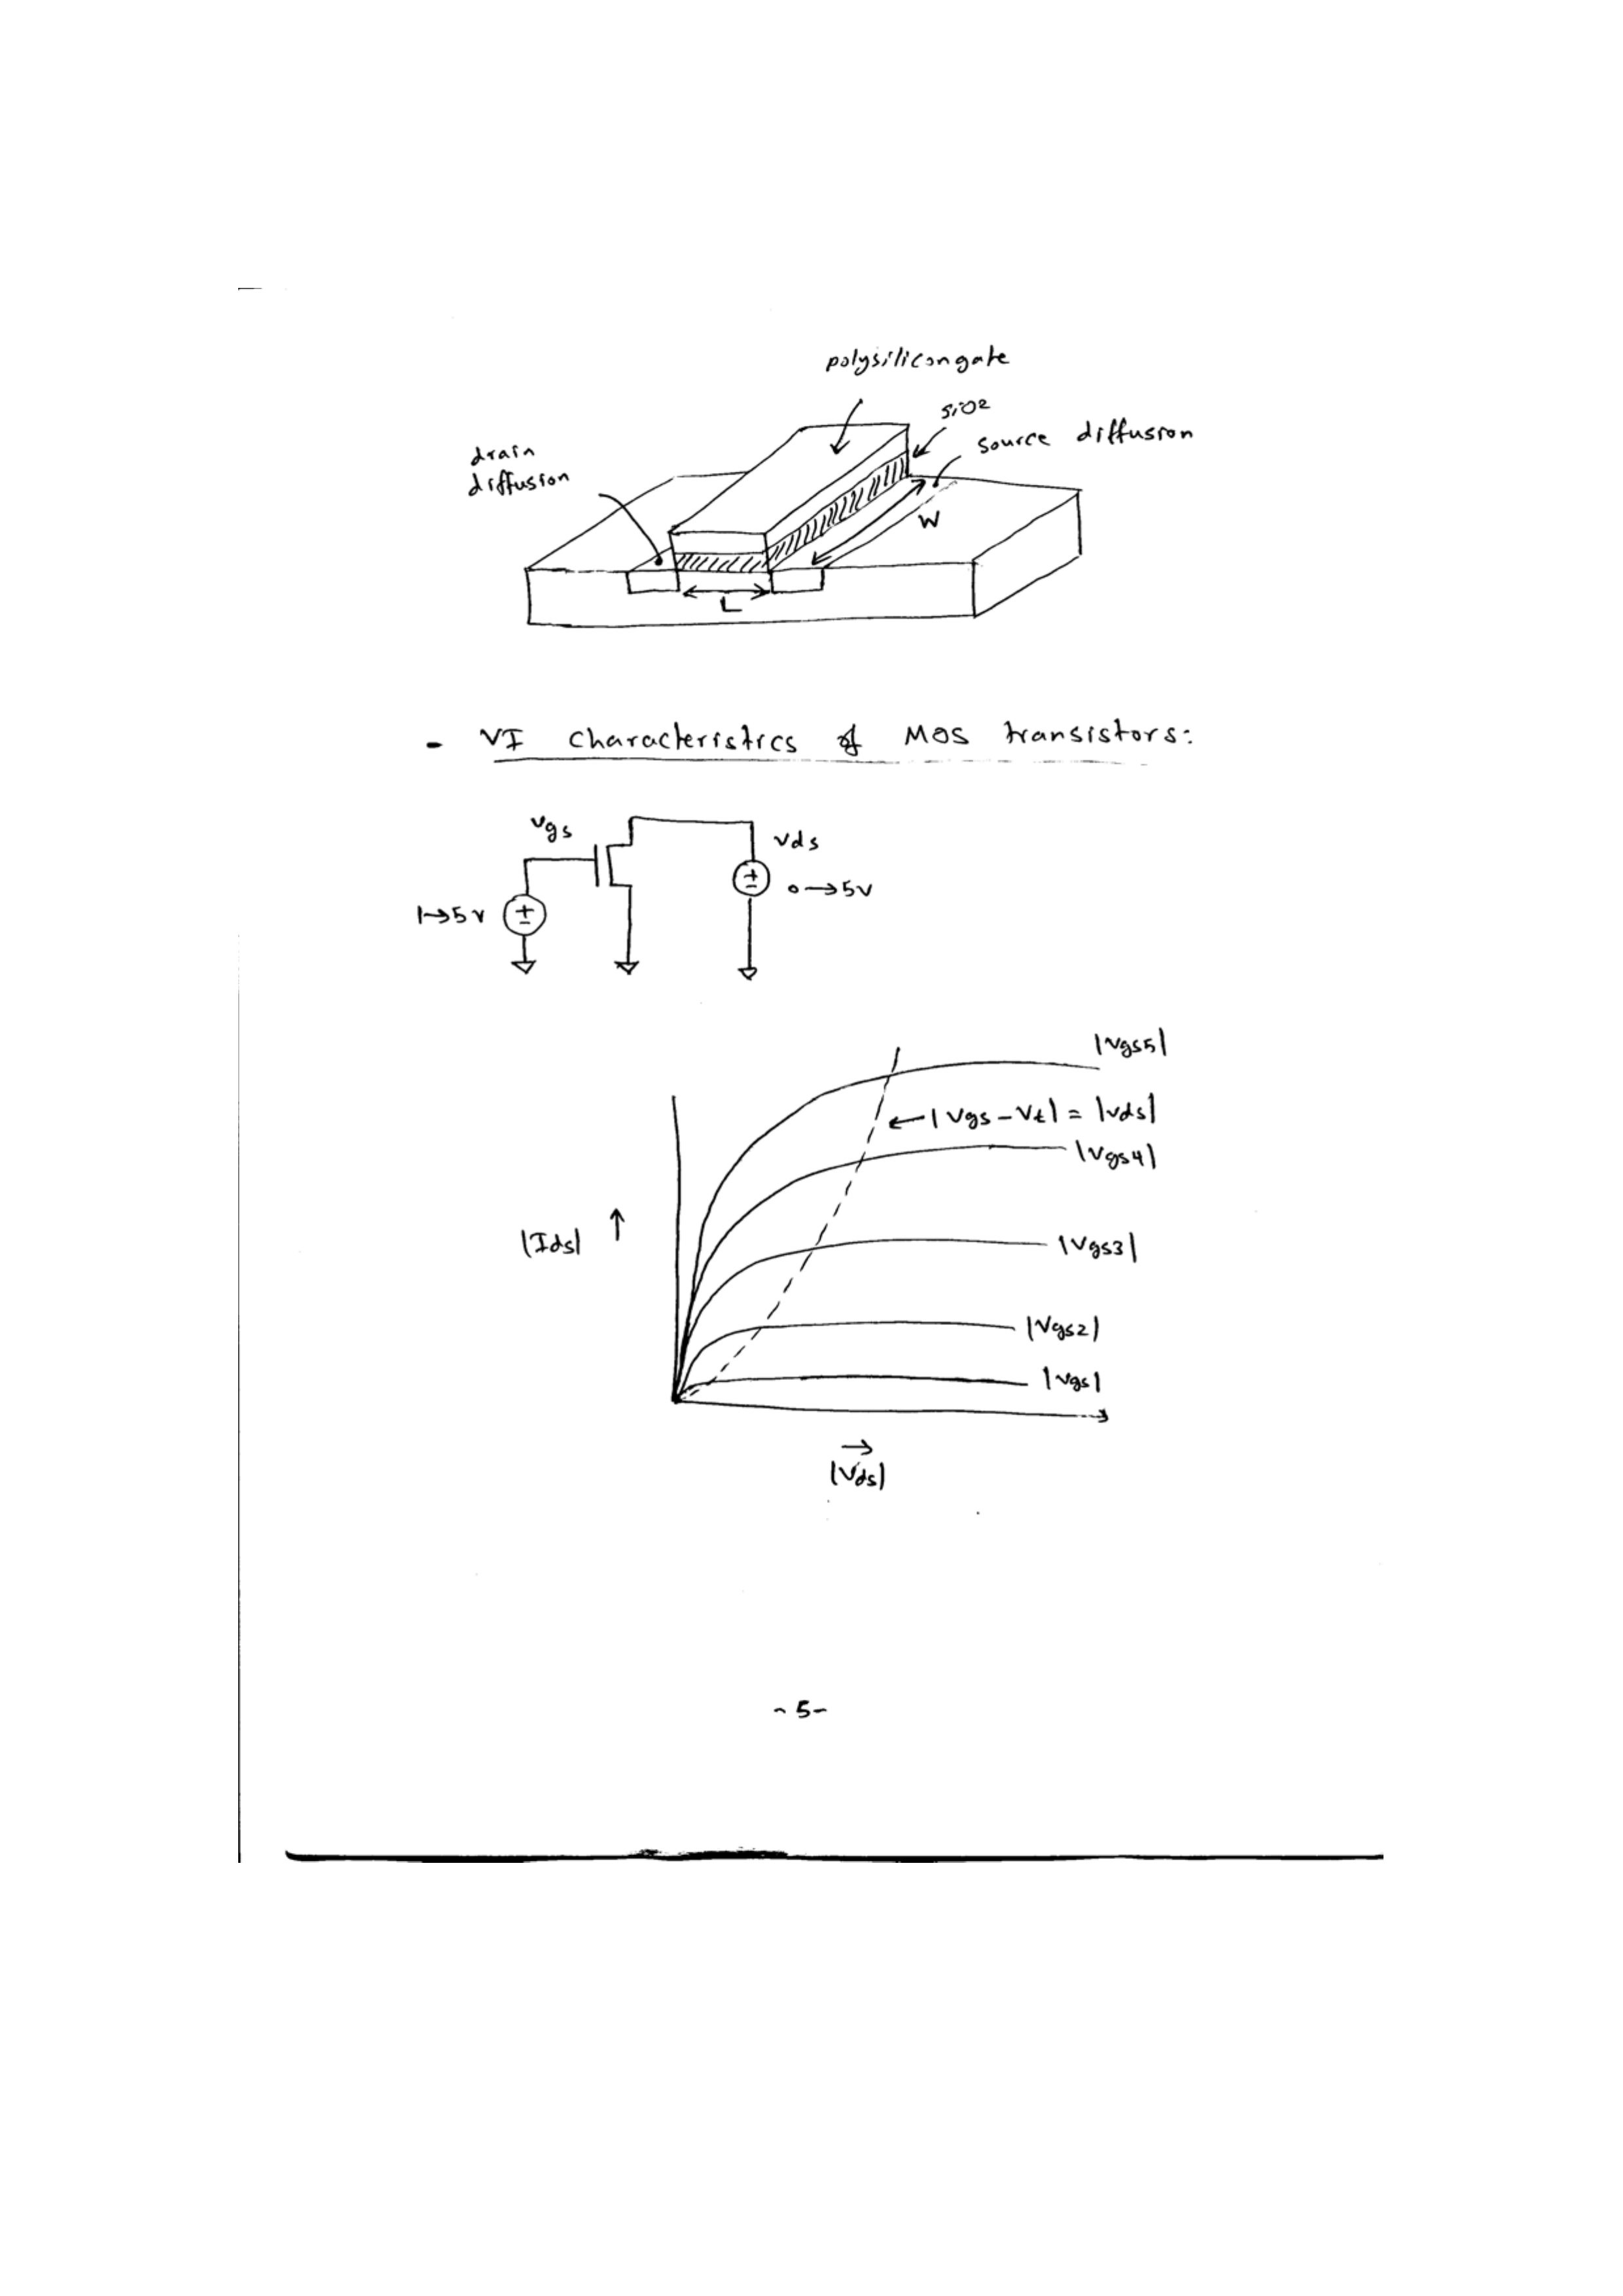 polysilicon gate
SiO2
source diffusion
drain
diffusion
W
L
- VI characteristics of MOS transistors:
Vgs
Vds
1→5v
0→5v
|Vgs5|
←|Vgs-Vt| = |vds|
|Vgs4|
|Ids| ↑
|Vgs3|
|Vgs2|
|Vgs|
→
|Vds|
- 5-